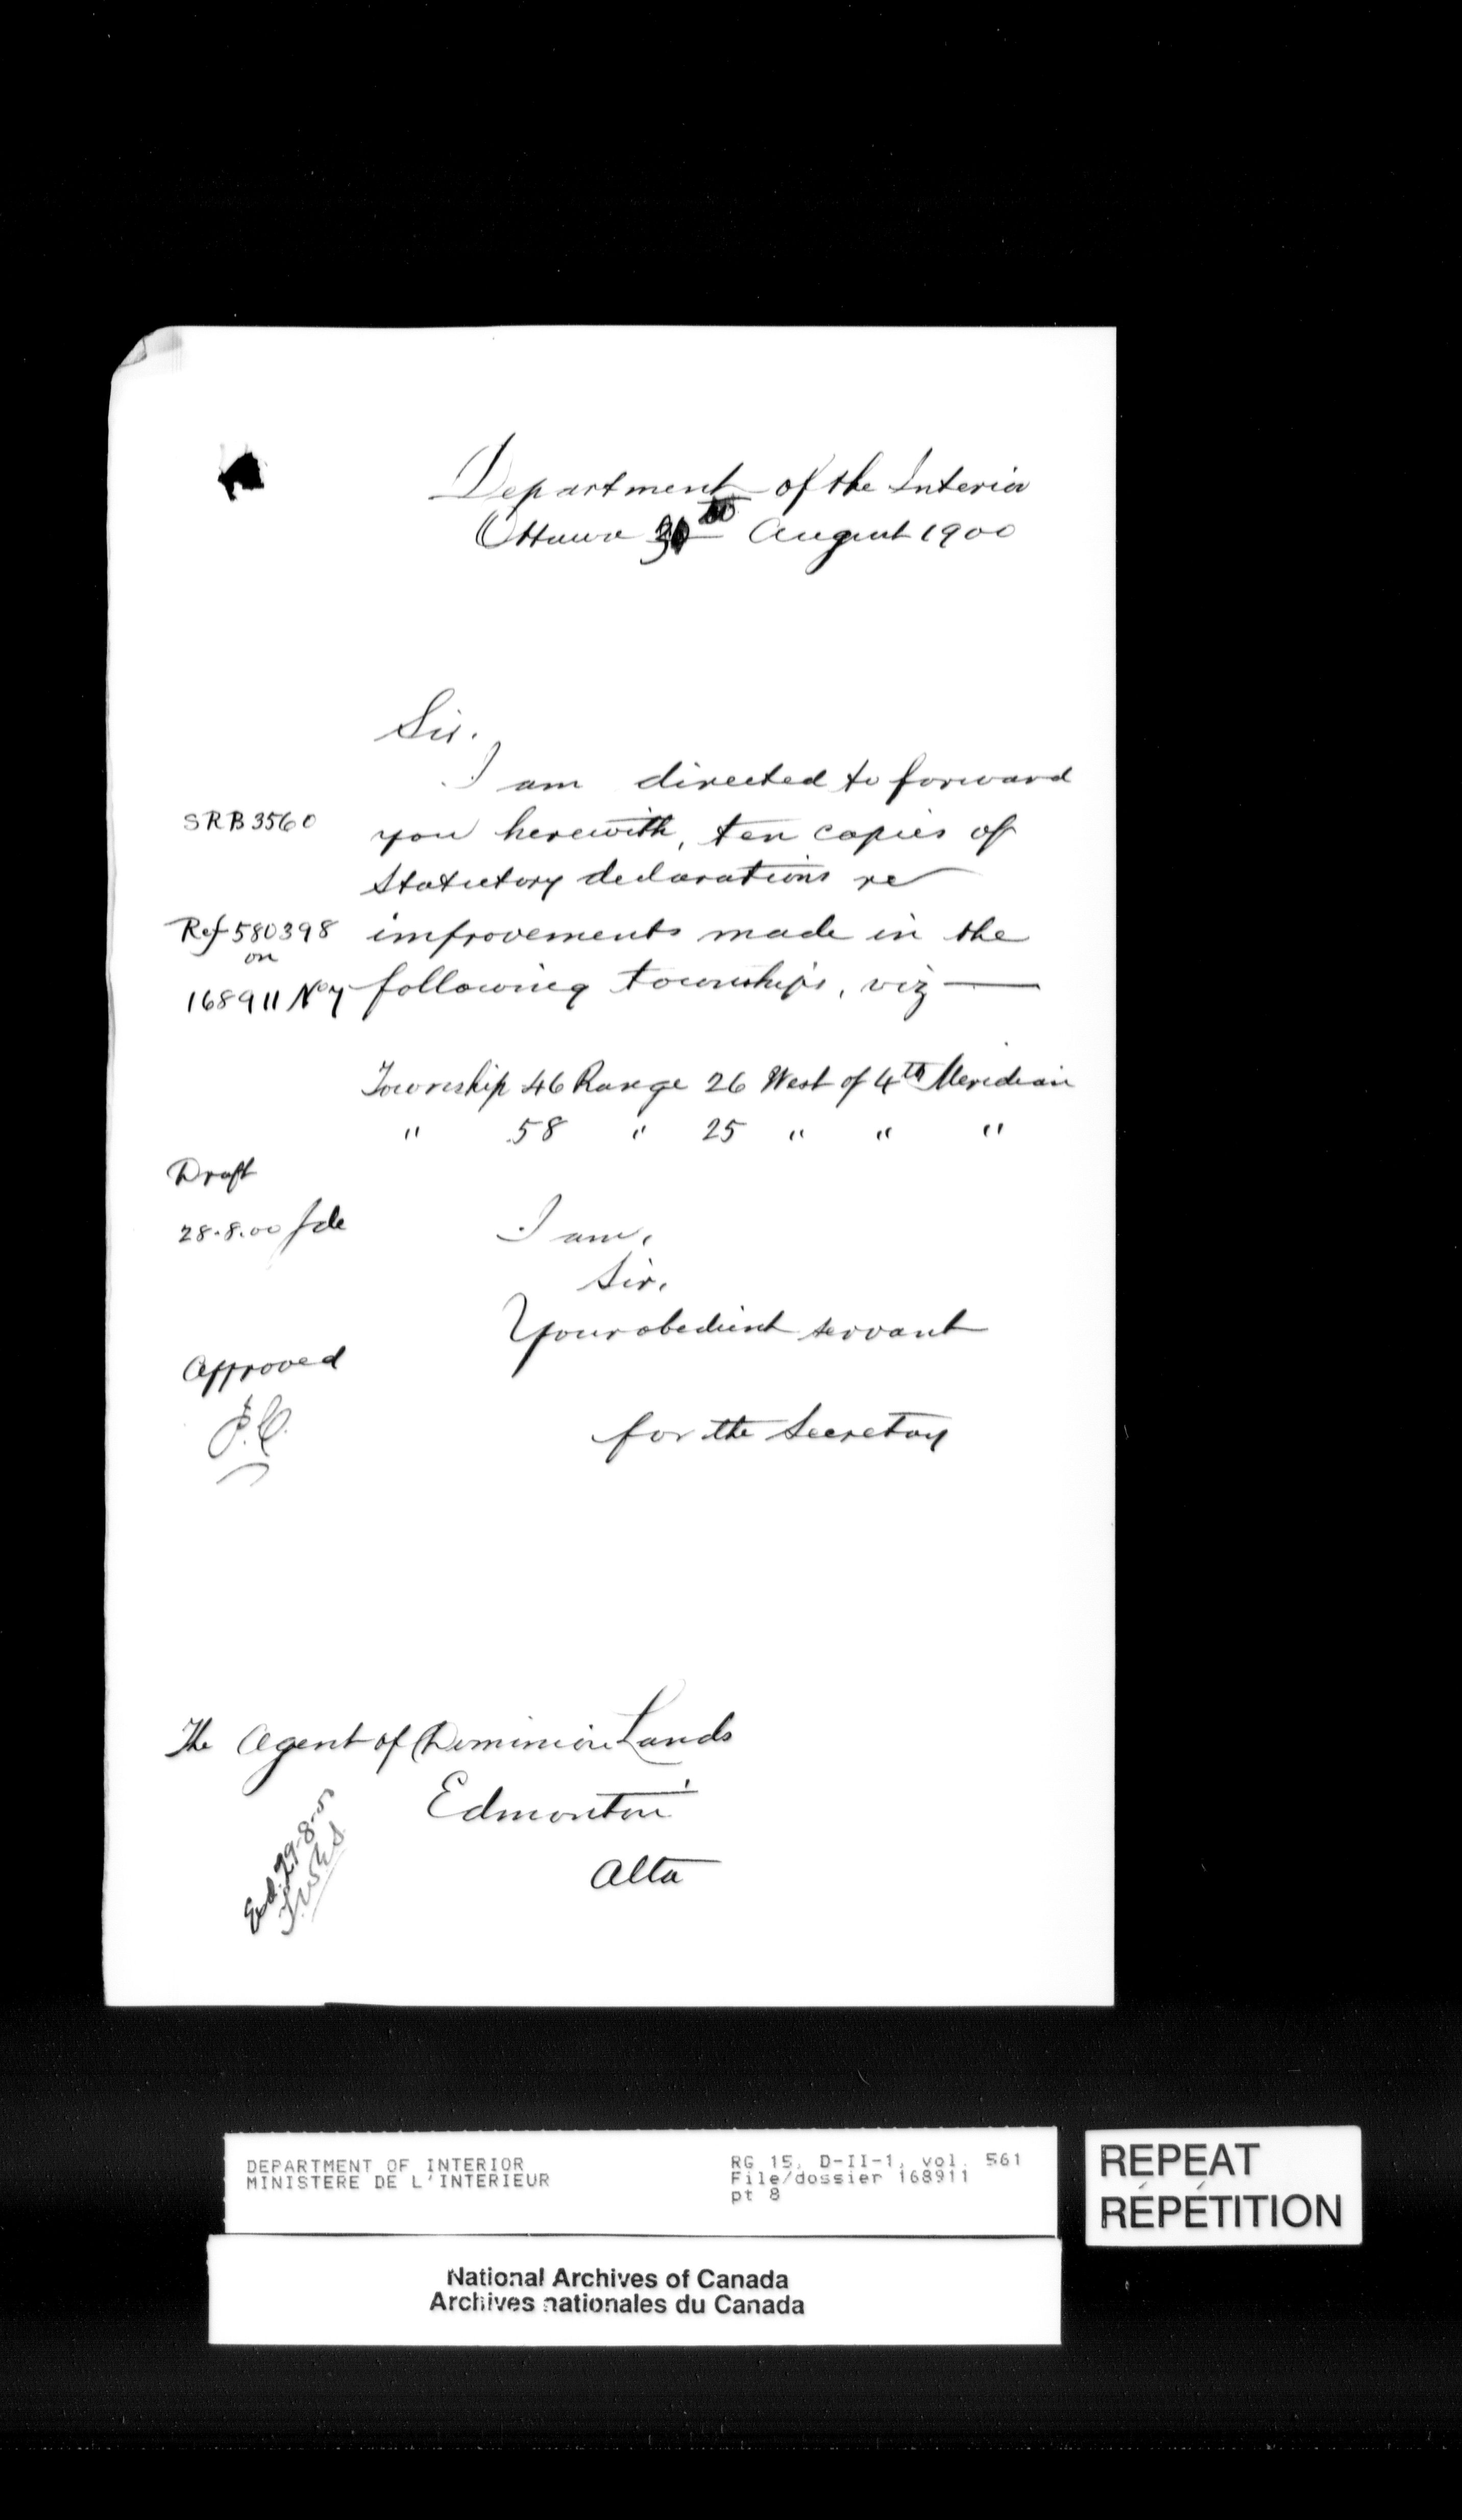 Department of the Interior
Ottawa 30th August 1900
Sir.
I am directed to forward
SRB 3560 you herewith, ten copies of
Statutory declarations re
Ref 580398 improvements made in the
on
168911 No 7 following townships, viz —
Township 46 Range 26 West of 4th Meridian
" 58 " 25 " " "
Draft
28.8.00 I am,
Sir.
Your obedient servant
Approved
for the Secretary
The Agent of Dominion Lands
Edmonton
Alta
29-8-
DEPARTMENT OF INTERIOR
MINISTERE DE L'INTERIEUR
RG 15, D-II-1, vol. 561
File/dossier 168911
pt 8
REPEAT
RÉPÉTITION
National Archives of Canada
Archives nationales du Canada